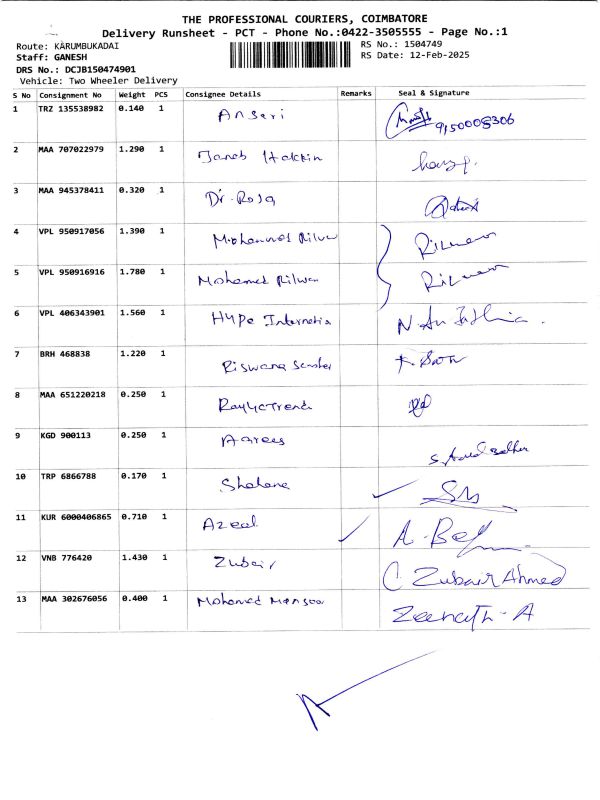 THE PROFESSIONAL COURIERS, COIMBATORE
Delivery Runsheet - PCT - Phone No.:0422-3505555 - Page No.:1
Route: KARUMBUKADAI
RS No.: 1504749
Staff: GANESH
RS Date: 12-Feb-2025
DRS No.: DCJB150474901
Vehicle: Two Wheeler Delivery
S No Consignment No Weight PCS Consignee Details Remarks Seal & Signature
1 TRZ 135538982 0.140 1 Ansari 9150005306
2 MAA 707022979 1.290 1
3 MAA 945378411 0.320 1 Dr. Roja
4 VPL 950917056 1.390 1 Rilwan
5 VPL 950916916 1.780 1 Mohamed Rilwan
6 VPL 406343901 1.560 1 Hype
7 BRH 468838 1.220 1 Riswana
8 MAA 651220218 0.250 1
9 KGD 900113 0.250 1
10 TRP 6866788 0.170 1
11 KUR 6000406865 0.710 1
12 VNB 776420 1.430 1 Zubair C Zubair Ahmed
13 MAA 302676056 0.400 1 Mohamed Mansoor Zeenath-A